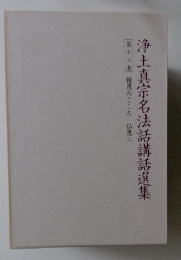 浄土真宗名法話講話選集
[第十二巻] 報恩のこころ 仏恩二